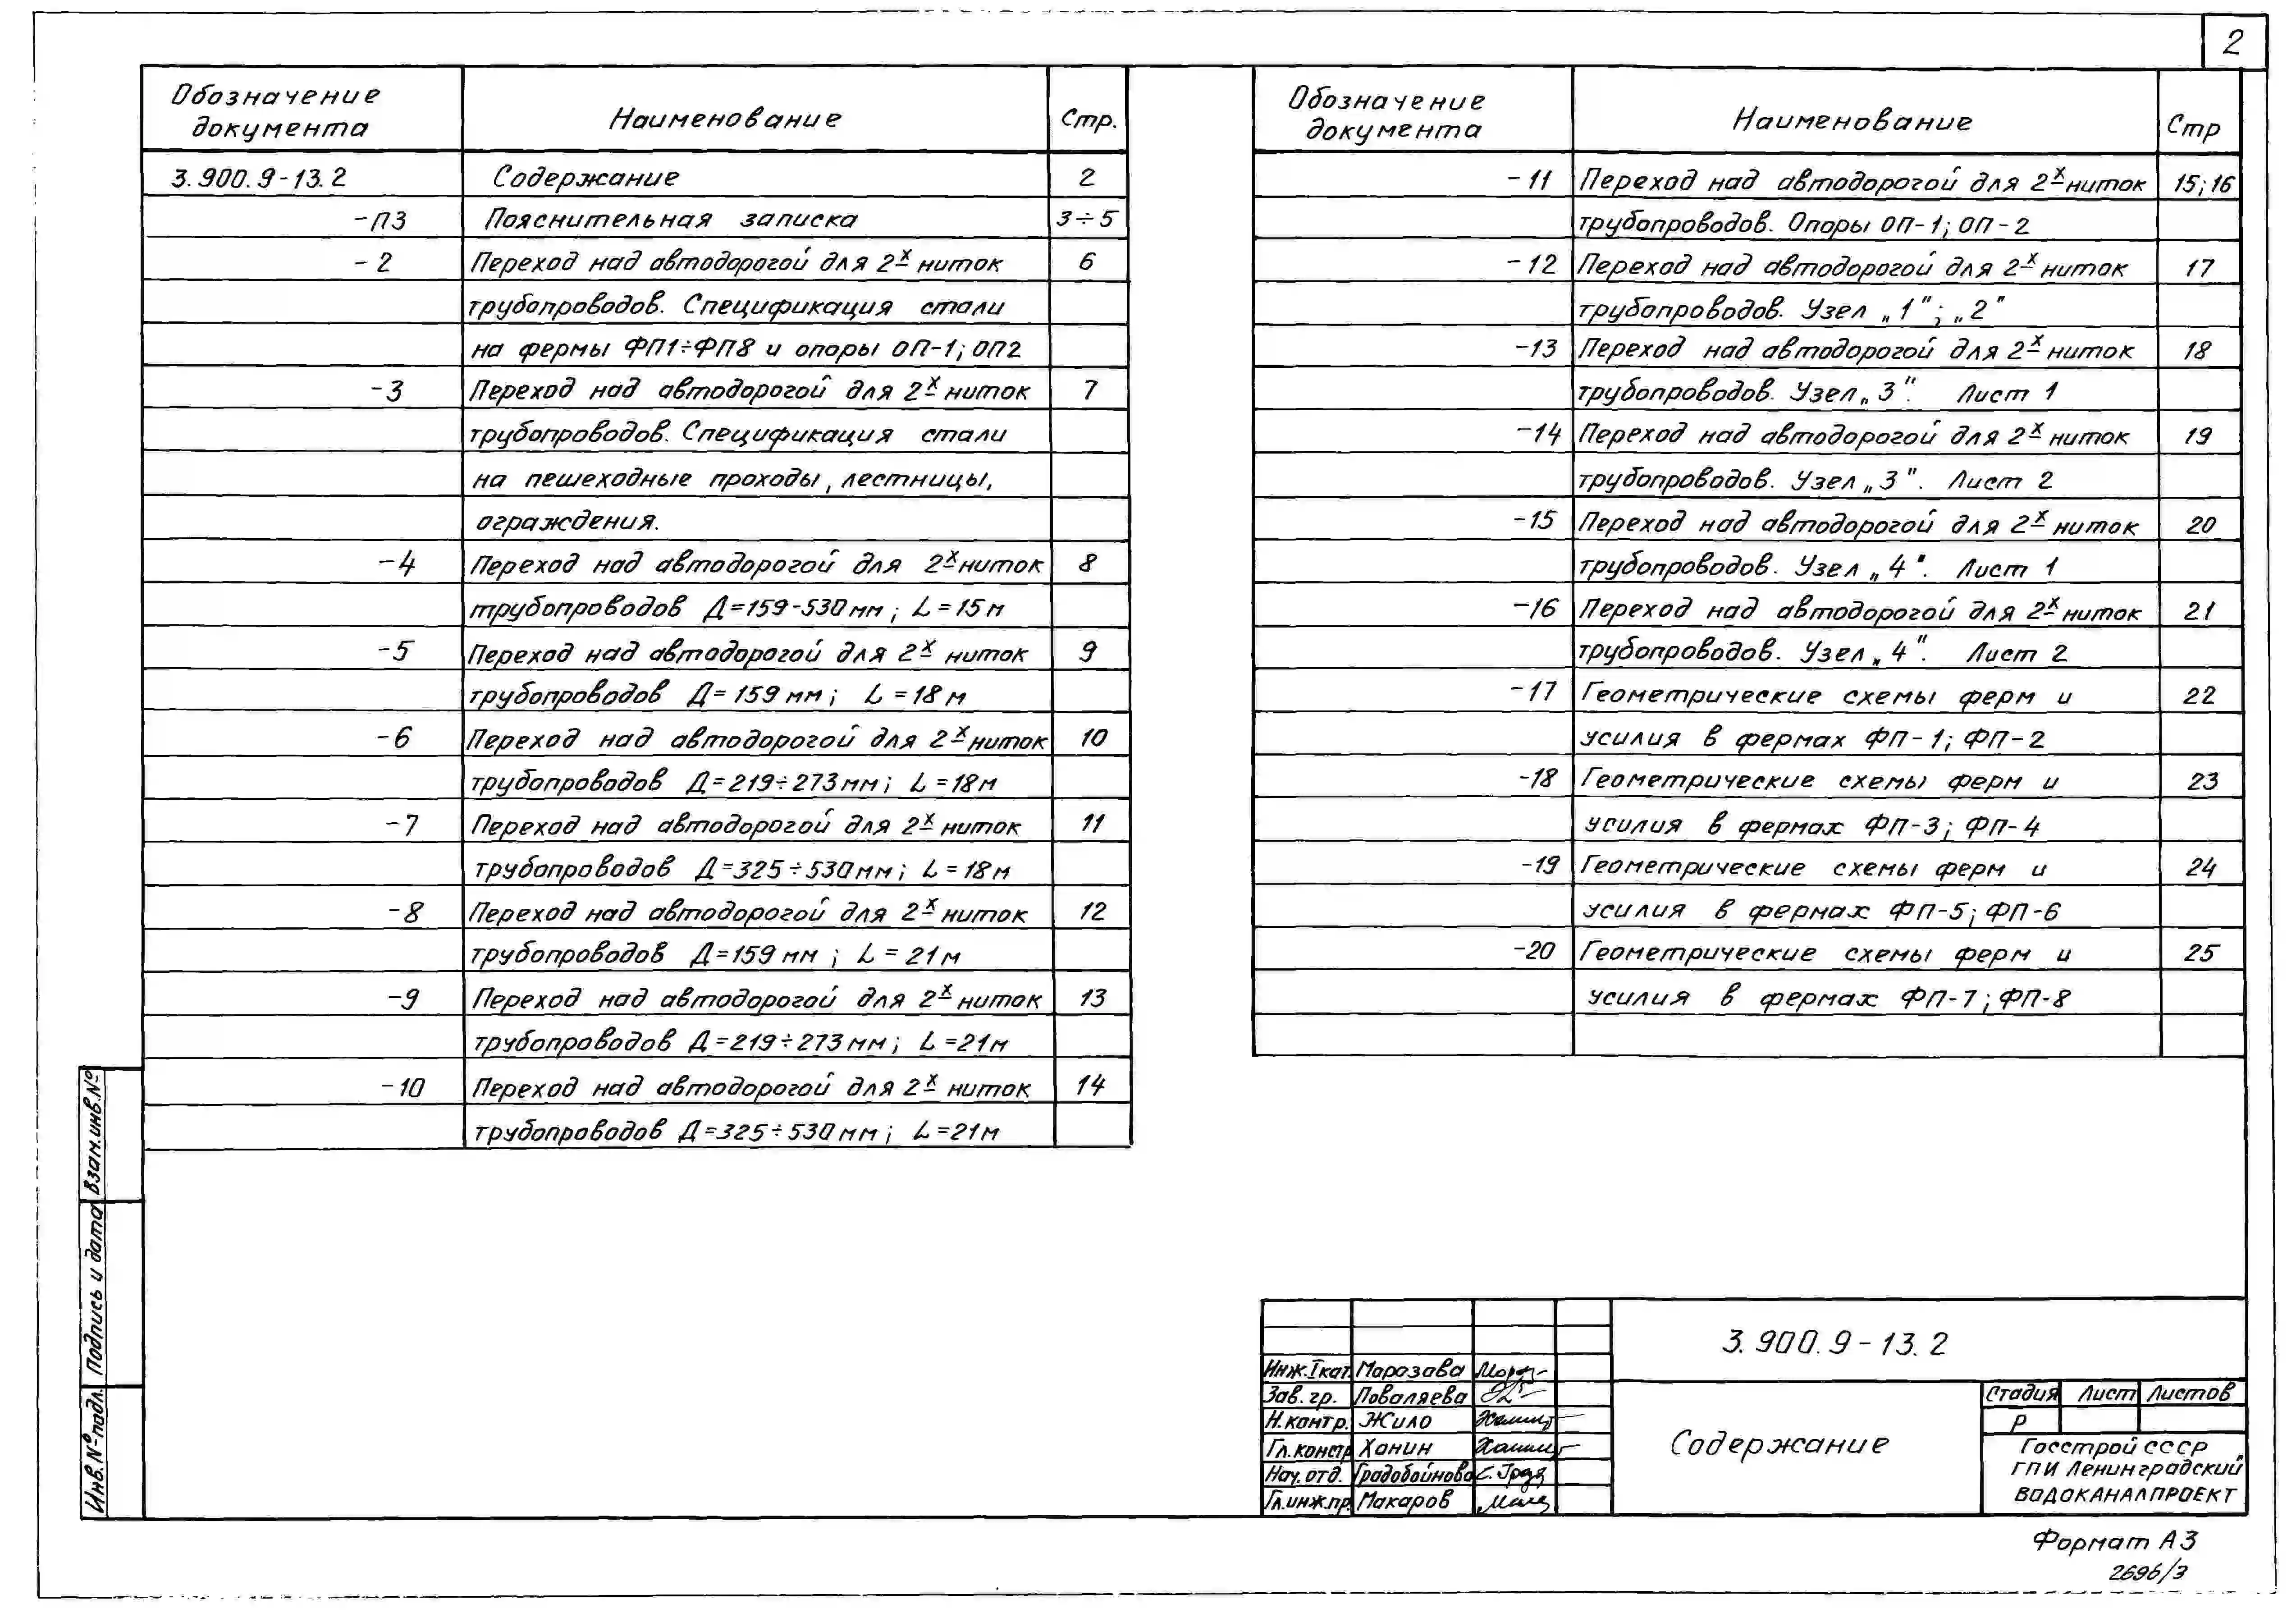 2
Обозначение документа Наименование Стр.
3.900.9-13.2 Содержание 2
-ПЗ Пояснительная записка 3÷5
-2 Переход над автодорогой для 2х ниток 6
трубопроводов. Спецификация стали
на фермы ФП1÷ФП8 и опоры ОП-1; ОП2
-3 Переход над автодорогой для 2х ниток 7
трубопроводов. Спецификация стали
на пешеходные проходы, лестницы,
ограждения.
-4 Переход над автодорогой для 2х ниток 8
трубопроводов Д=159-530мм; L=15м
-5 Переход над автодорогой для 2х ниток 9
трубопроводов Д=159мм; L=18м
-6 Переход над автодорогой для 2х ниток 10
трубопроводов Д=219÷273мм; L=18м
-7 Переход над автодорогой для 2х ниток 11
трубопроводов Д=325÷530мм; L=18м
-8 Переход над автодорогой для 2х ниток 12
трубопроводов Д=159мм; L=21м
-9 Переход над автодорогой для 2х ниток 13
трубопроводов Д=219÷273мм; L=21м
-10 Переход над автодорогой для 2х ниток 14
трубопроводов Д=325÷530мм; L=21м
Обозначение документа Наименование Стр
-11 Переход над автодорогой для 2х ниток 15;16
трубопроводов. Опоры ОП-1; ОП-2
-12 Переход над автодорогой для 2х ниток 17
трубопроводов. Узел „1"; „2"
-13 Переход над автодорогой для 2х ниток 18
трубопроводов. Узел „3". Лист 1
-14 Переход над автодорогой для 2х ниток 19
трубопроводов. Узел „3". Лист 2
-15 Переход над автодорогой для 2х ниток 20
трубопроводов. Узел „4". Лист 1
-16 Переход над автодорогой для 2х ниток 21
трубопроводов. Узел „4". Лист 2
-17 Геометрические схемы ферм и 22
усилия в фермах ФП-1; ФП-2
-18 Геометрические схемы ферм и 23
усилия в фермах ФП-3; ФП-4
-19 Геометрические схемы ферм и 24
усилия в фермах ФП-5; ФП-6
-20 Геометрические схемы ферм и 25
усилия в фермах ФП-7; ФП-8
Взам.инв.№
Подпись и дата
Инв.№подл.
3.900.9-13.2
Инж.Iкат. Морозова
Зав.гр. Поваляева
Н.контр. Жило
Гл.констр Ханин
Нач.отд. Градобойнова
Гл.инж.пр. Макаров
Содержание
Стадия Лист Листов
Р
Госстрой СССР
ГПИ Ленинградский
ВОДОКАНАЛПРОЕКТ
Формат А3
2696/3